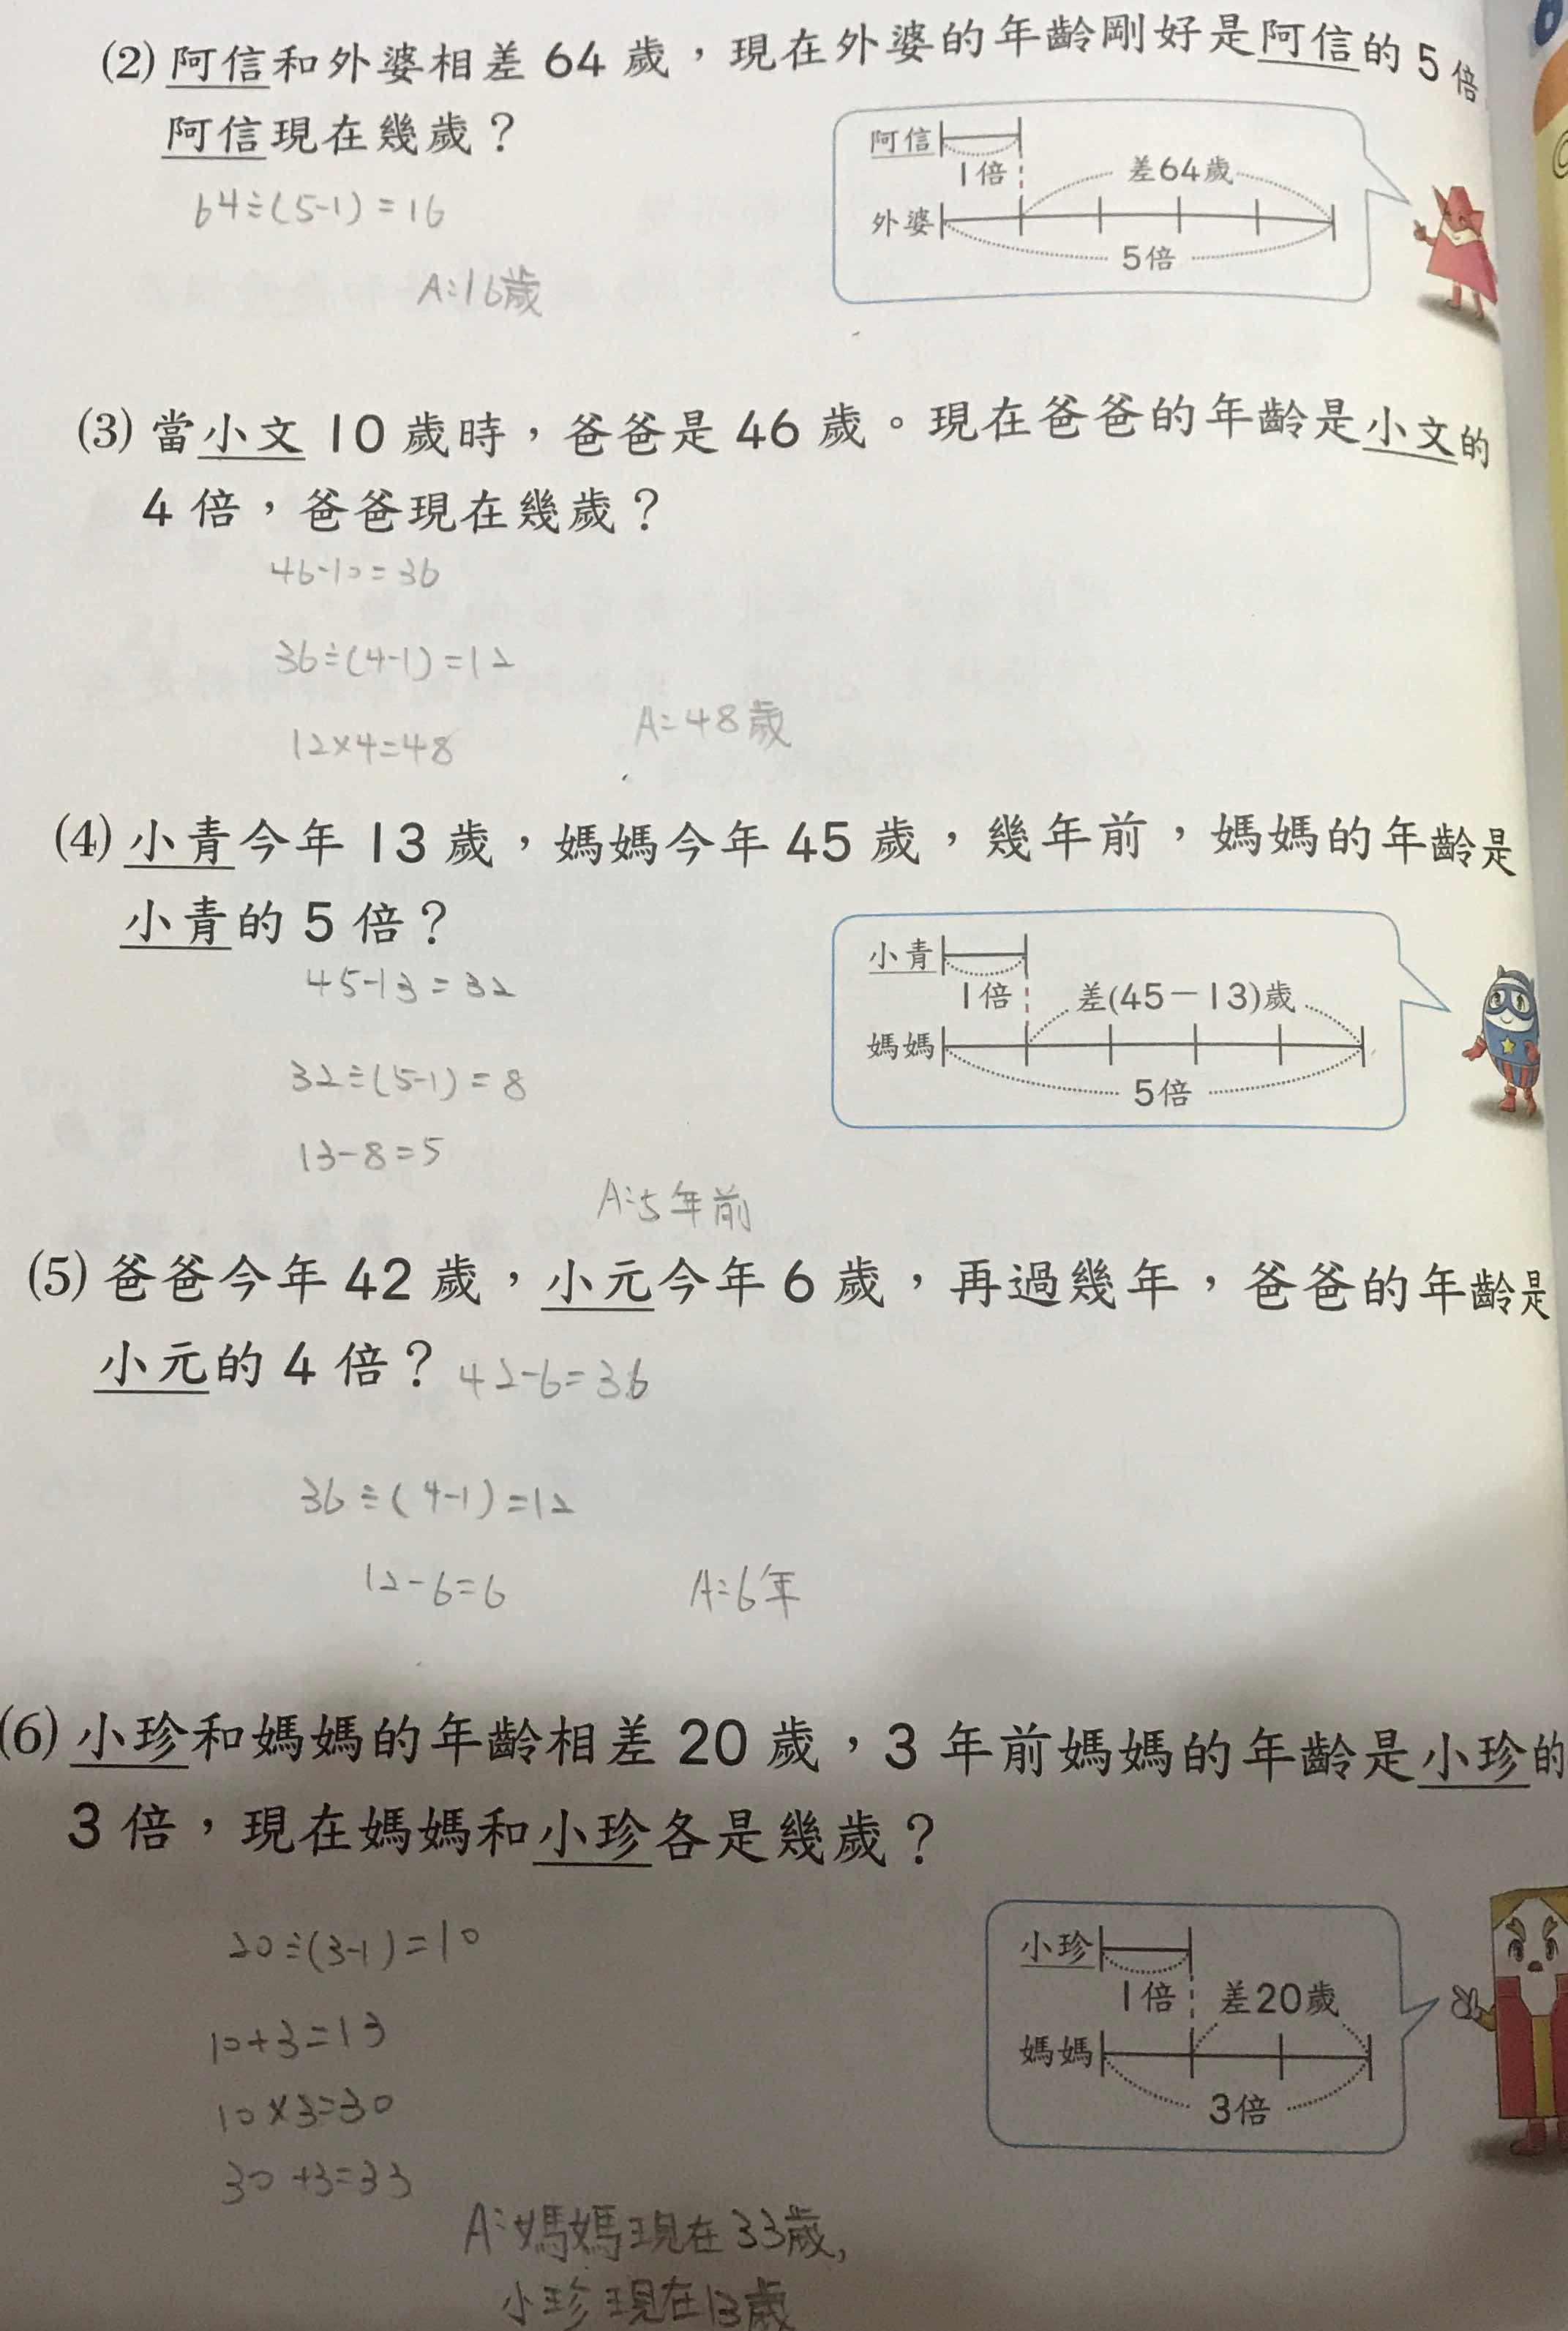 (2) 阿信和外婆相差 64 歲，現在外婆的年齡剛好是阿信的 5 倍
阿信現在幾歲？
64÷(5-1)=16
A:16歲
阿信
1倍
差64歲
外婆
5倍
(3) 當小文 10 歲時，爸爸是 46 歲。現在爸爸的年齡是小文的
4 倍，爸爸現在幾歲？
46-10=36
36÷(4-1)=12
12×4=48
A:48歲
(4) 小青今年 13 歲，媽媽今年 45 歲，幾年前，媽媽的年齡是
小青的 5 倍？
45-13=32
32÷(5-1)=8
13-8=5
A:5年前
小青
1倍
差(45－13)歲
媽媽
5倍
(5) 爸爸今年 42 歲，小元今年 6 歲，再過幾年，爸爸的年齡是
小元的 4 倍？ 42-6=36
36÷(4-1)=12
12-6=6
A:6年
(6) 小珍和媽媽的年齡相差 20 歲，3 年前媽媽的年齡是小珍的
3 倍，現在媽媽和小珍各是幾歲？
20÷(3-1)=10
10+3=13
10×3=30
30+3=33
A:媽媽現在33歲,
小珍現在13歲
小珍
1倍
差20歲
媽媽
3倍